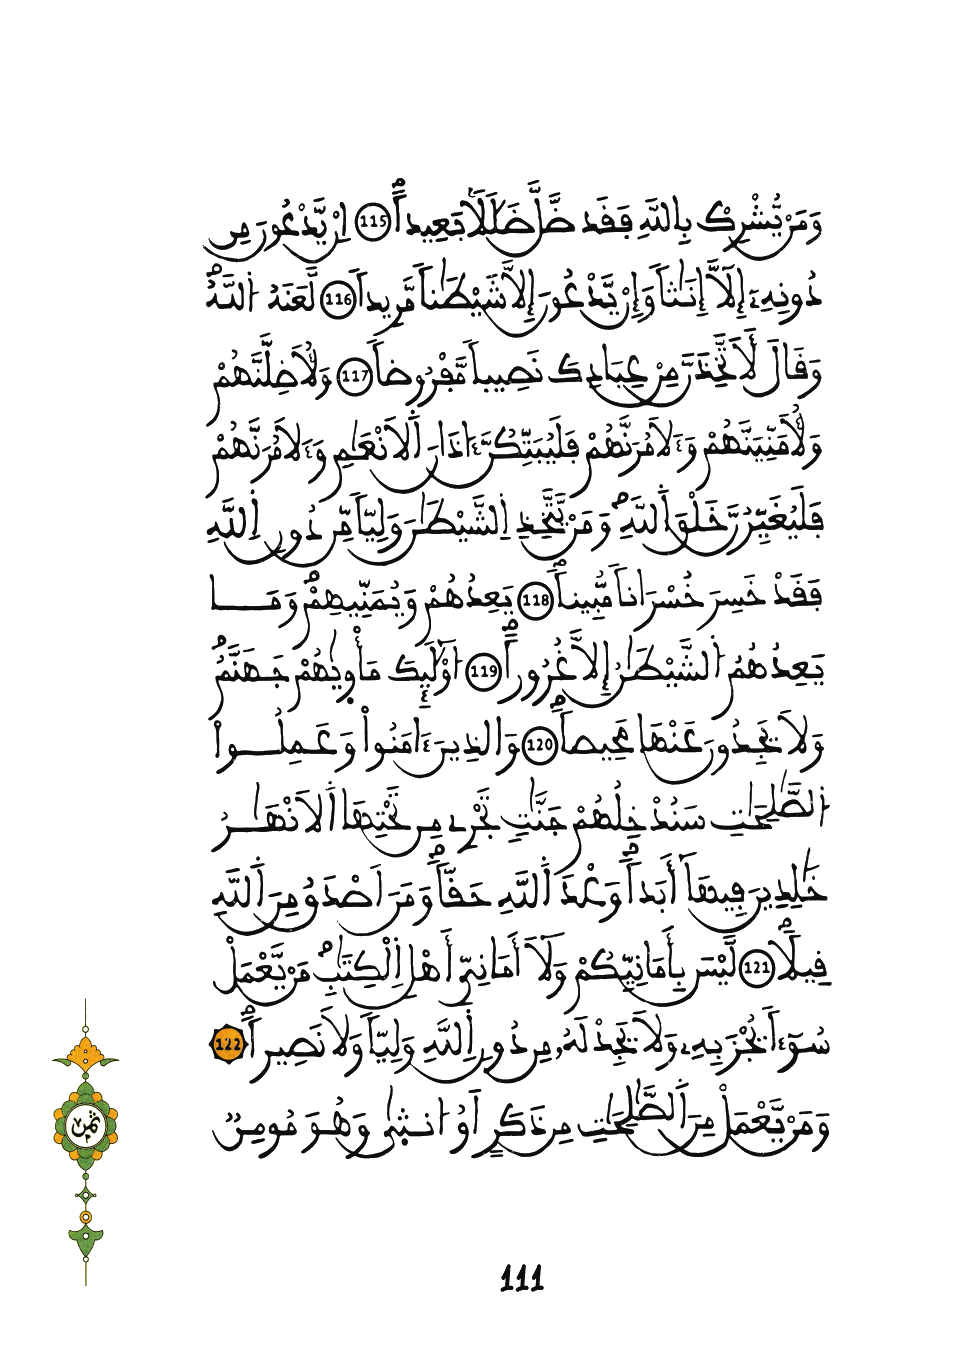 وَمَنْ يُّشْرِكْ بِاللَّهِ فَقَد ضَّلَّ ضَلَٰلاَۢ بَعِيداًۖ 115 اِنْ يَّدْعُونَ مِن
دُونِهِۦٓ إِلَّآ إِنَٰثاً وَإِنْ يَّدْعُونَ إِلاَّ شَيْطَٰناً مَّرِيداً 116 لَّعَنَهُ اُ۬للَّهُۖ
وَقَالَ لَأَتَّخِذَنَّ مِنْ عِبَادِكَ نَصِيباً مَّفْرُوضاً 117 وَلَأُضِلَّنَّهُمْ
وَلَأُمَنِّيَنَّهُمْ وَءَلَامُرَنَّهُمْ فَلَيُبَتِّكُنَّ ءَاذَانَ اَ۬لَانْعَٰمِ وَءَلَامُرَنَّهُمْ
فَلَيُغَيِّرُنَّ خَلْقَ اَ۬للَّهِۖ وَمَنْ يَّتَّخِذِ اِ۬لشَّيْطَٰنَ وَلِيّاً مِّن دُونِ اِ۬للَّهِ
فَقَدْ خَسِرَ خُسْرَاناً مُّبِيناًۖ 118 يَعِدُهُمْ وَيُمَنِّيهِمْۖ وَمَا
يَعِدُهُمُ اُ۬لشَّيْطَٰنُ إِلاَّ غُرُوراًۖ 119 اُوْلَٰٓئِكَ مَأْوِيٰهُمْ جَهَنَّمُۖ
وَلاَ يَجِدُونَ عَنْهَا مَحِيصاًۖ 120 وَالذِينَ ءَامَنُواْ وَعَمِلُواْ
اُ۬لصَّٰلِحَٰتِ سَنُدْخِلُهُمْ جَنَّٰتٍ تَجْرِے مِن تَحْتِهَا اَ۬لَانْهَٰرُ
خَٰلِدِينَ فِيهَآ أَبَداًۖ وَعْدَ اَ۬للَّهِ حَقّاًۖ وَمَنَ اَصْدَقُ مِنَ اَ۬للَّهِ
قِيلاًۖ 121 لَّيْسَ بِأَمَانِيِّكُمْ وَلَآ أَمَانِيِّ أَهْلِ اِ۬لْكِتَٰبِۖ مَنْ يَّعْمَلْ
سُوٓءاً يُجْزَ بِهِۦ وَلاَ يَجِدْ لَهُۥ مِن دُونِ اِ۬للَّهِ وَلِيّاً وَلاَ نَصِيراًۖ 122
وَمَنْ يَّعْمَلْ مِنَ اَ۬لصَّٰلِحَٰتِ مِن ذَكَرٍ اَوُ ا۟نث۪يٰ وَهُوَ مُومِنٞ
ثمن
111